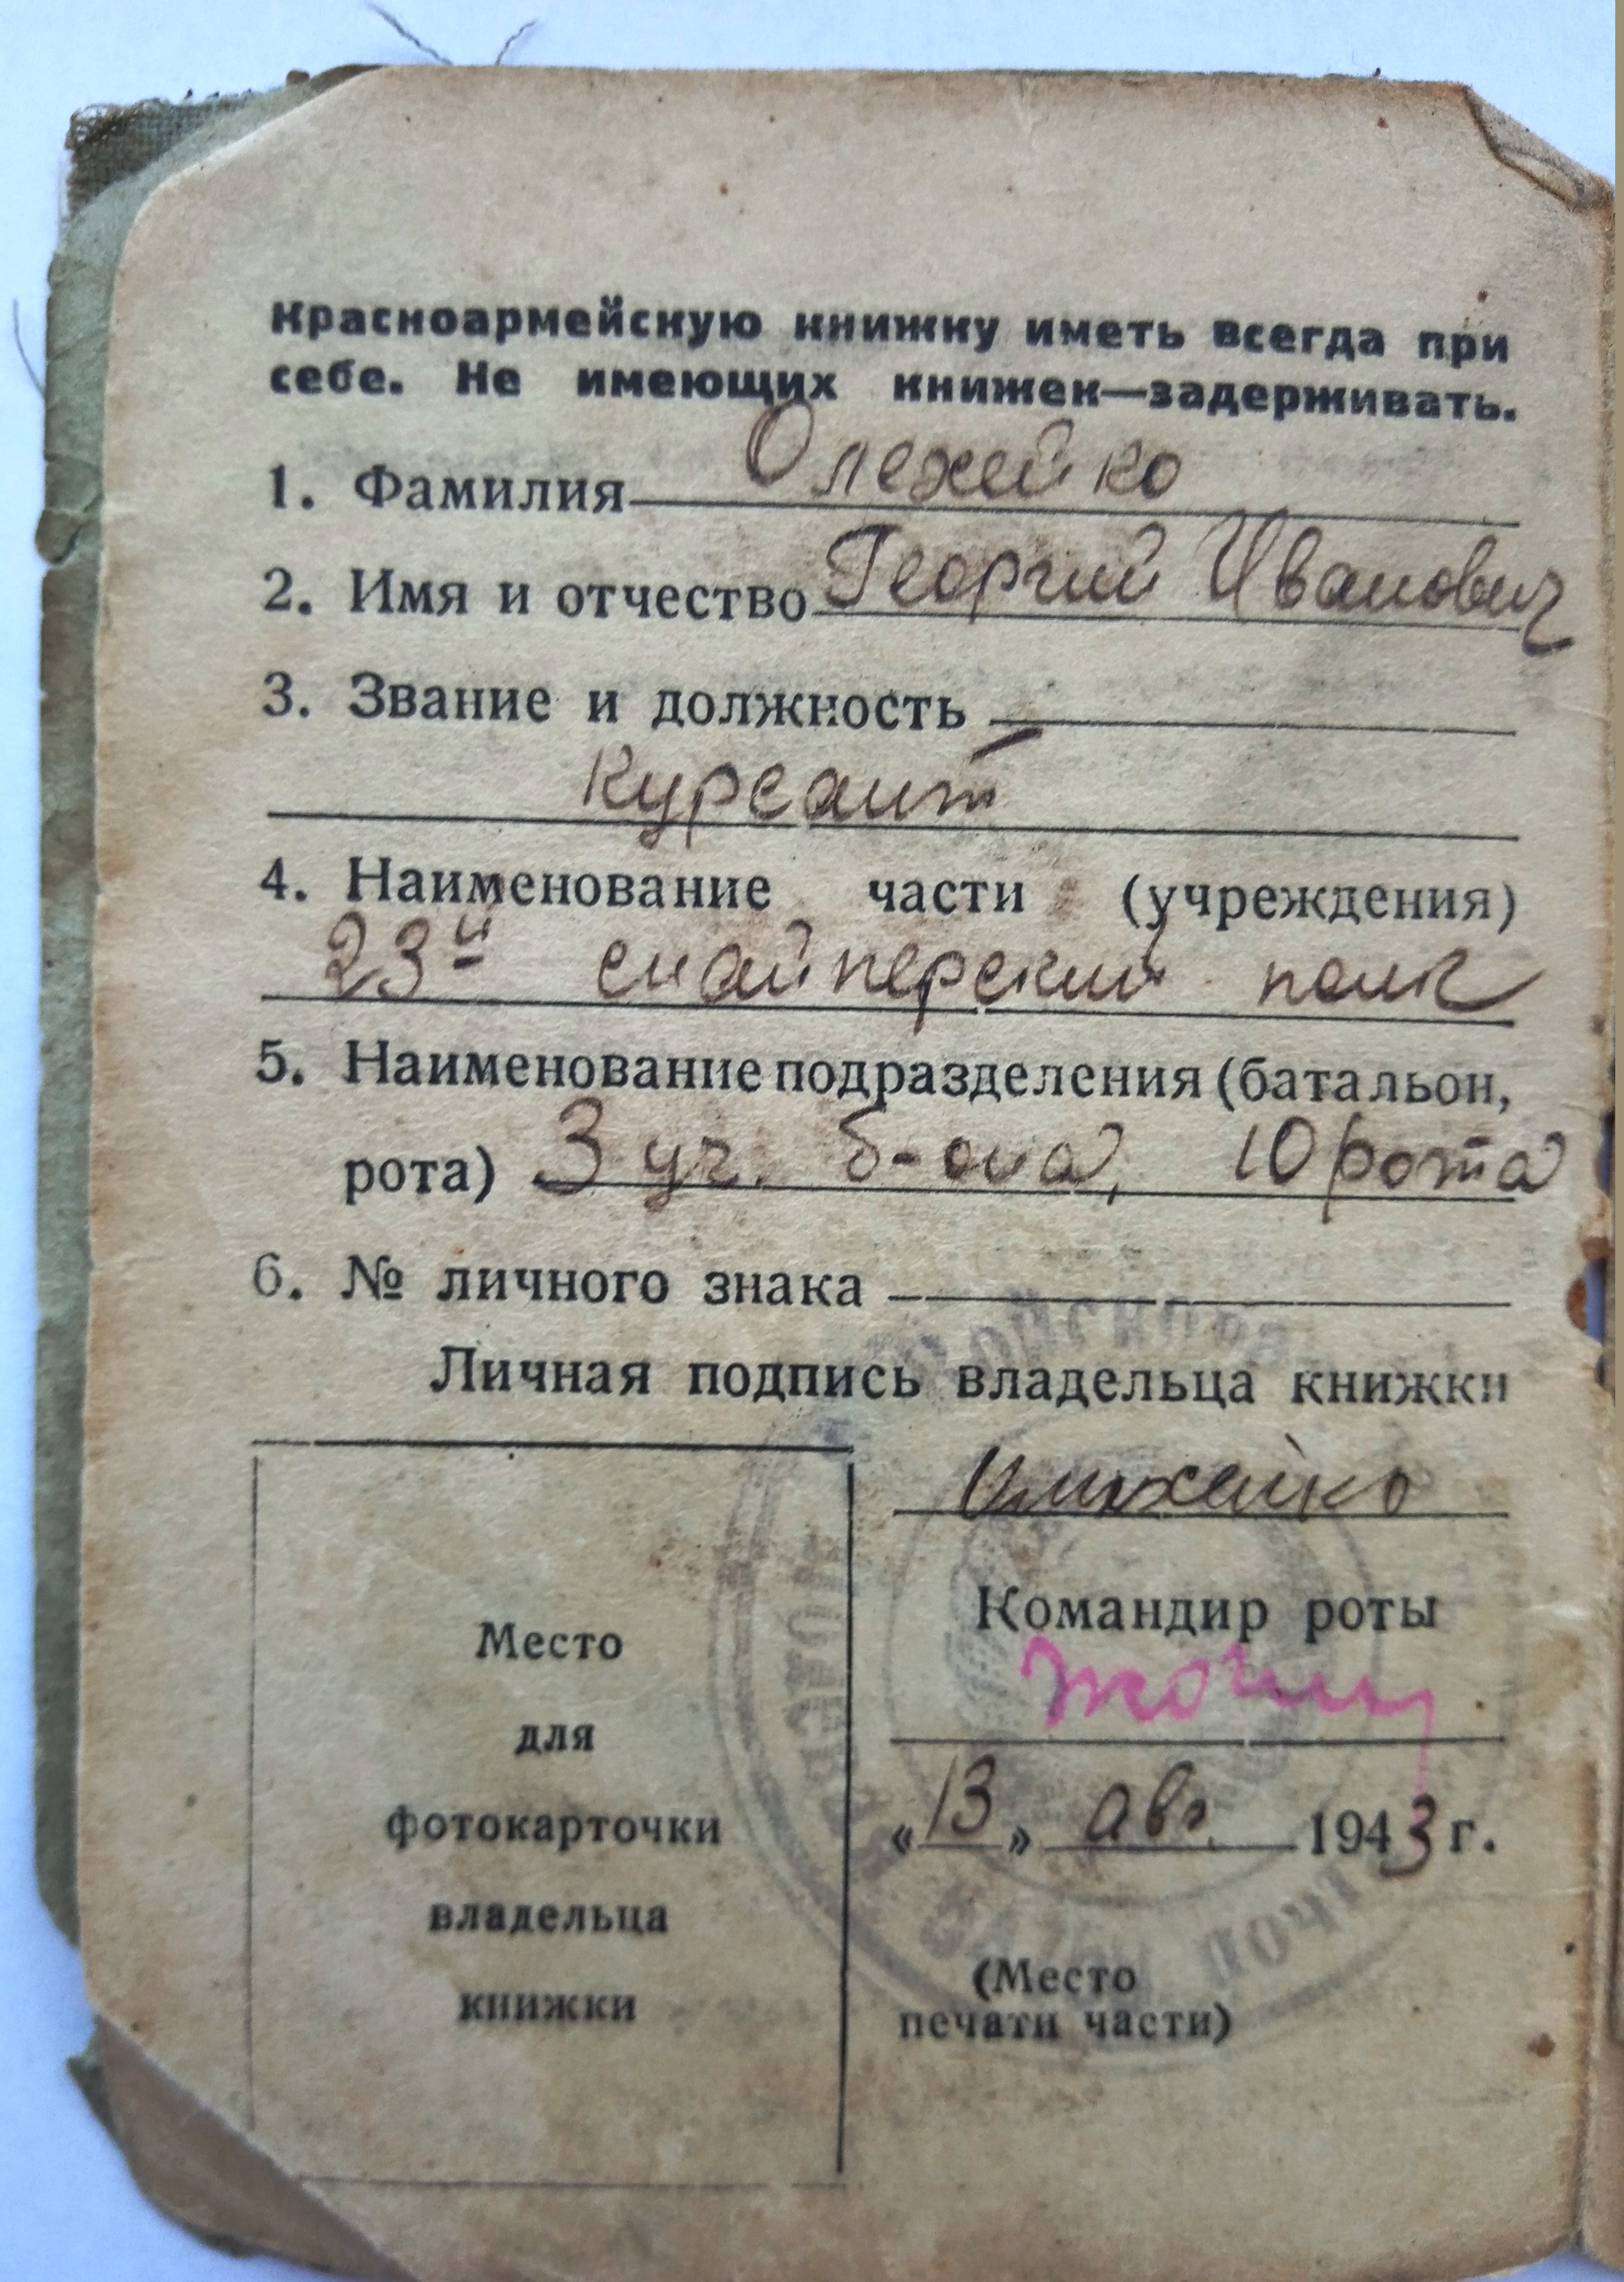 Красноармейскую книжку иметь всегда при
себе. Не имеющих книжек—задерживать.
1. Фамилия Олехейко
2. Имя и отчество Георгий Иванович
3. Звание и должность
Курсант
4. Наименование части (учреждения)
23й снайперский полк
5. Наименование подразделения (батальон,
рота) 3 уч. б-она, 10 рота
6. № личного знака
Личная подпись владельца книжки
Командир роты
«13» авг. 1943 г.
(Место
печати части)
Место
для
фотокарточки
владельца
книжки